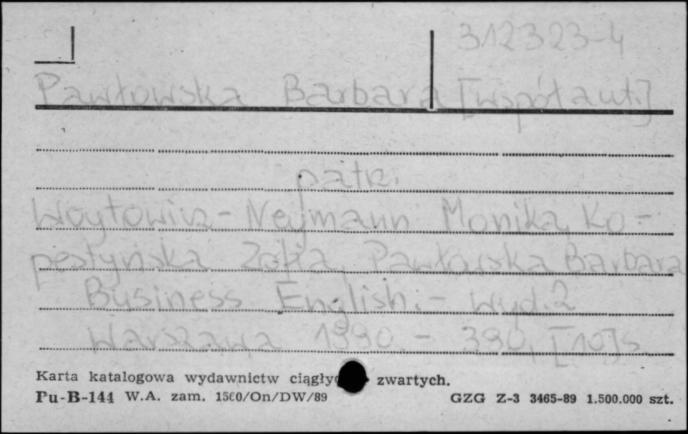 312323-4
Pawłowska Barbara [współaut.]
patrz:
Woytowicz-Neymann Monika, Ko-
pestyńska Zofia, Pawłowska Barbara
Business English. - Wyd. 2
Warszawa 1990. - 390, [10] s
Karta katalogowa wydawnictw zwartych.
Pu-B-144 W.A. zam. 1560/On/DW/89 GZG Z-3 3465-89 1.500.000 szt.